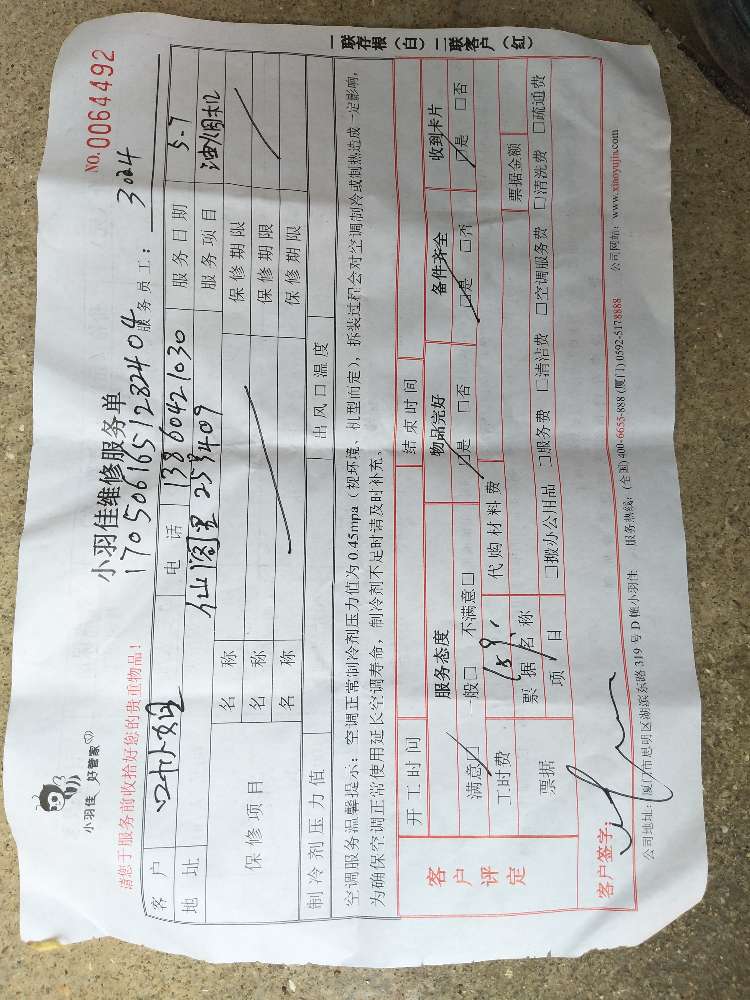 小羽佳 好管家
小羽佳维修服务单
No.0064492
170506165128 2404
请您于服务前收拾好您的贵重物品!
服务员工: 3024
客户 电话 13860421030 服务日期 5.7
地址 仙阁里 259409 服务项目 油烟机
保修项目
名称 保修期限
名称 保修期限
名称 保修期限
制冷剂压力值 出风口温度
空调服务温馨提示:空调正常制冷剂压力值为0.45mpa(视环境、机型而定),拆装过程会对空调制冷或制热造成一定影响,
为确保空调正常使用延长空调寿命,制冷剂不足时请及时补充。
客户评定
开工时间 结束时间
服务态度 物品完好 备件齐全 收到卡片
满意□ 一般□ 不满意□ □是 □否 □是 □否 □是 □否
工时费 代购材料费
票据 票据名称 票据金额
项目 □搬办公用品 □服务费 □清洁费 □空调服务费 □清洗费 □疏通费
客户签字:
公司地址:厦门市思明区湖滨东路319号D幢小羽佳 服务热线:(全国)400-6655-888 (厦门)0592-5178888 公司网站:www.xiaoyujia.com
一联存根(白) 二联客户(红)